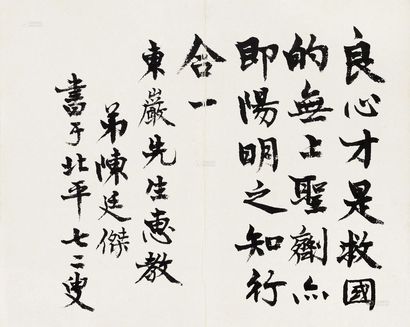 良心才是救國
的無上聖劑亦
即陽明之知行
合一
東巖先生惠教
弟陳廷傑
書于北平七二叟